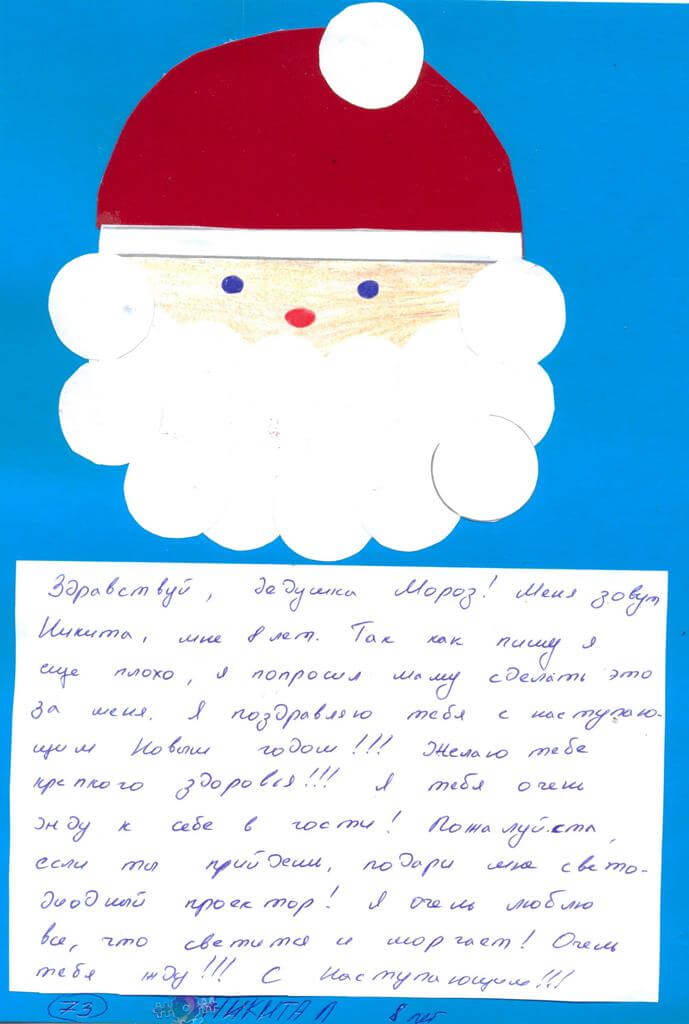 Здравствуй, дедушка Мороз! Меня зовут
Никита, мне 8 лет. Так как пишу я
еще плохо, я попросил маму сделать это
за меня. Я поздравляю тебя с наступаю-
щим Новым годом!!! Желаю тебе
крепкого здоровья!!! Я тебя очень
жду к себе в гости! Пожалуйста,
если ты прийдеш, подари мне свето-
диодный проектор! Я очень люблю
все, что светится и моргает! Очень
тебя жду!!! С Наступающим!!!
73 НИКИТА Л 8 лет